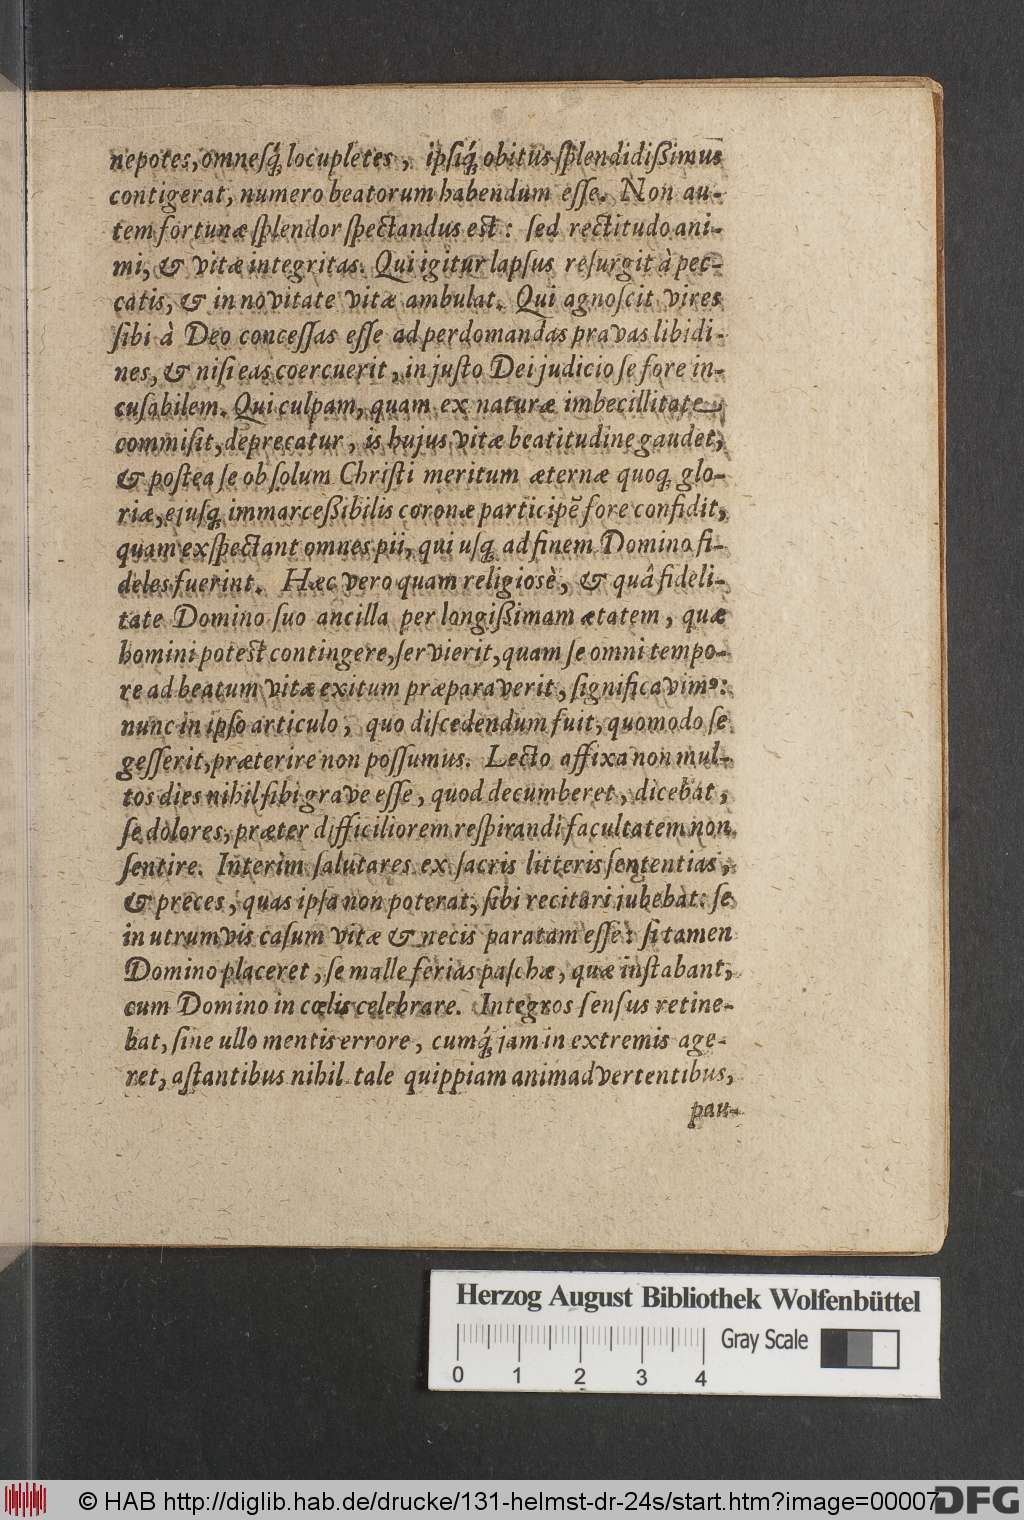 nepotes, omneſq́; locupletes, ipſiq́; obitus ſplendidißimus
contigerat, numero beatorum habendum eſſe. Non au-
tem fortunæ ſplendor ſpectandus est: ſed rectitudo ani-
mi, & vitæ integritas. Qui igitur lapſus reſurgit à pec-
catis, & in novitate vitæ ambulat. Qui agnoſcit vires
ſibi à Deo conceſſas eſſe ad perdomandas pravas libidi-
nes, & niſi eas coercuerit, in juſto Dei judicio ſe fore in-
cuſabilem. Qui culpam, quam ex naturæ imbecillitate
commiſit, deprecatur, is hujus vitæ beatitudine gaudet,
& poſtea ſe ob ſolum Chriſti meritum æternæ quoq; glo-
riæ, ejuſq; immarceßibilis coronæ participẽ fore confidit,
quam exſpectant omnes pii, qui uſq; ad finem Domino fi-
deles fuerint. Hæc vero quam religiosè, & quâ fideli-
tate Domino ſuo ancilla per longißimam ætatem, quæ
homini potest contingere, ſervierit, quam ſe omni tempo-
re ad beatum vitæ exitum præparaverit, ſignificavimꝰ:
nunc in ipſo articulo, quo diſcedendum fuit, quomodo ſe
geſſerit, præterire non poſſumus. Lecto affixa non mul-
tos dies nihil ſibi grave eſſe, quod decumberet, dicebat,
ſe dolores, præter difficiliorem reſpirandi facultatem non
ſentire. Interim ſalutares ex ſacris litteris ſententias,
& preces, quas ipſa non poterat, ſibi recitari jubebat: ſe
in utrumvis caſum vitæ & necis paratam eſſe: ſi tamen
Domino placeret, ſe malle ferias paſchæ, quæ inſtabant,
cum Domino in cœlis celebrare. Integros ſenſus retine-
bat, ſine ullo mentis errore, cumq́; jam in extremis age-
ret, aſtantibus nihil tale quippiam animadvertentibus,
pau-
Herzog August Bibliothek Wolfenbüttel
Gray Scale
0 1 2 3 4
© HAB http://diglib.hab.de/drucke/131-helmst-dr-24s/start.htm?image=00007
DFG